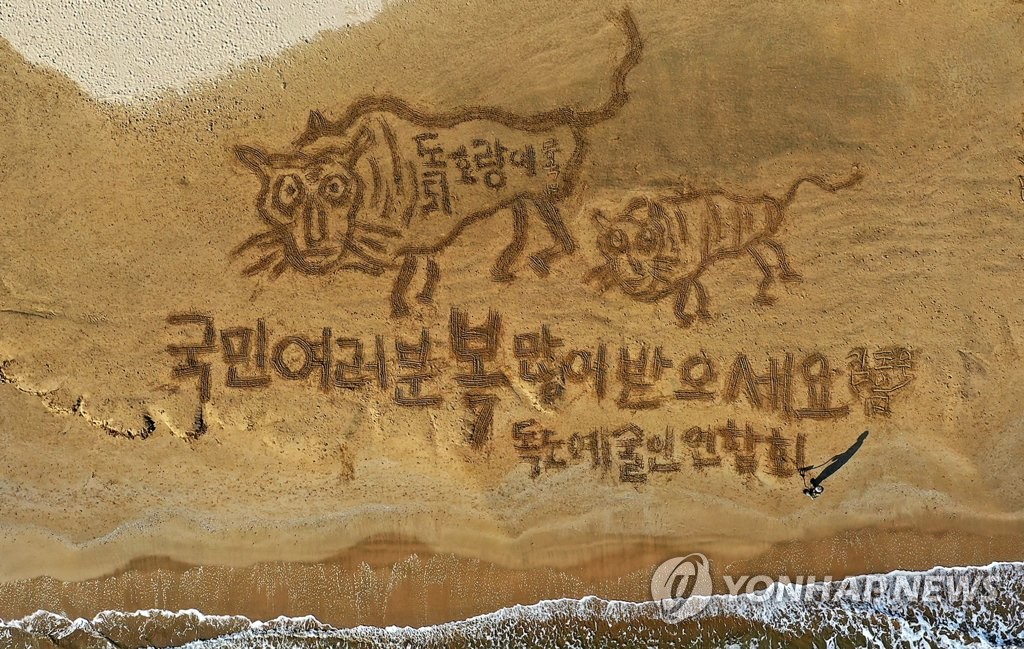 국민여러분 복 많이 받으세요
독도예술인연합회
YONHAP NEWS